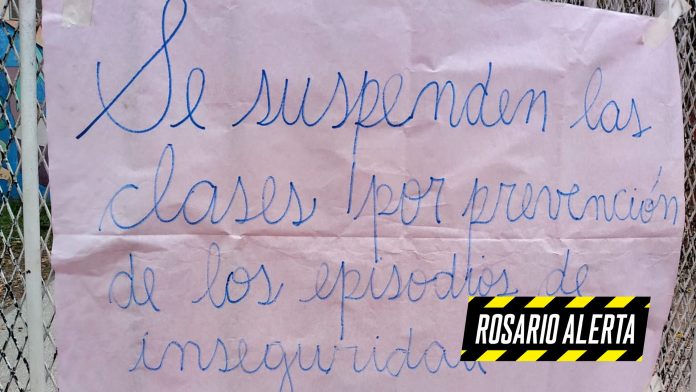 Se suspenden las
clases por prevención
de los episodios de
inseguridad
ROSARIO ALERTA